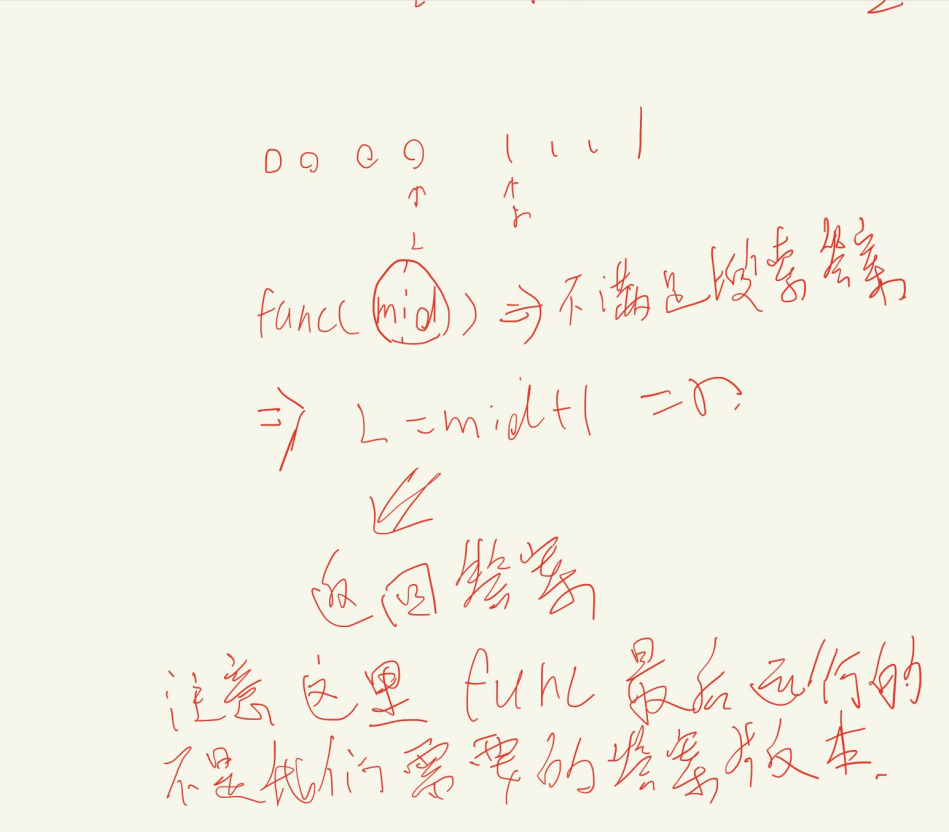 0 0 0 0 1 1 1 1
↑ ↑
L r
func(mid) ⇒ 不满足搜索答案
⇒ L=mid+1 =r.
返回答案
注意这里 func 最后运行的
不是我们需要的答案版本.